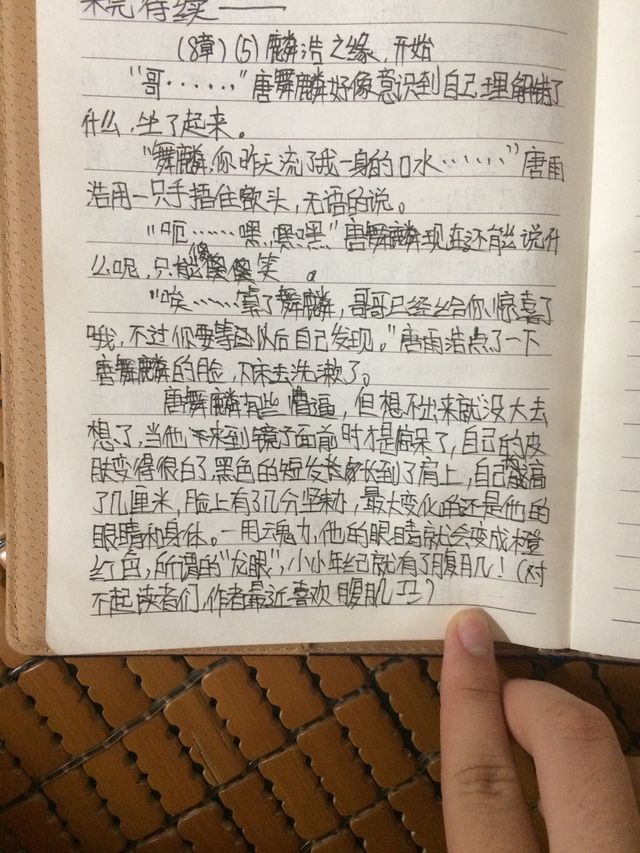 未完待续——
(8章)(5)麟浩之缘,开始
"哥······"唐舞麟好像意识到自己理解错了
什么,坐了起来。
"舞麟,你昨天流了我一身的口水······"唐雨
浩用一只手捂住额头,无语的说。
"呃······嘿,嘿嘿"唐舞麟现在还能说什
么呢,只能傻傻笑。
"唉······算了舞麟,哥哥已经给你惊喜了
哦,不过你要等以后自己发现。"唐雨浩点了一下
唐舞麟的脸,下床去洗漱了。
唐舞麟有些懵逼,但想不出来就没大去
想了,当他下来到镜子面前时才是惊呆了,自己的皮
肤变得很白了,黑色的短发长到了肩上,自己高
了几厘米,脸上有了几分坚韧,最大变化的还是他的
眼睛和身体。一用魂力,他的眼睛就会变成橙
红色,所谓的"龙眼",小小年纪就有了腹肌!(对
不起读者们,作者最近喜欢腹肌)